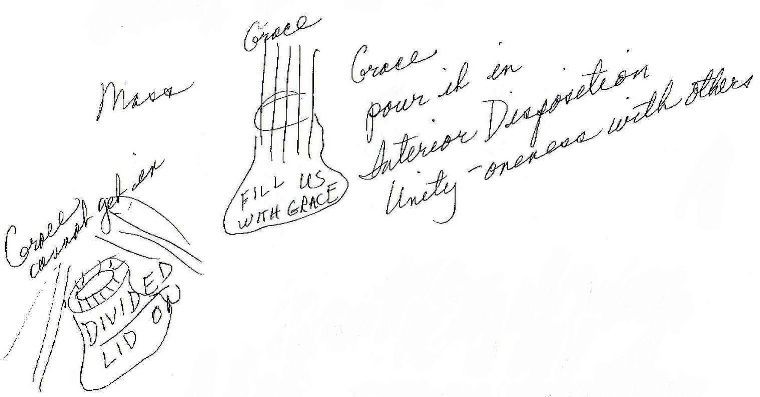 Grace
Mass
Grace
pour it in
Interior Disposition
Unity - oneness with others
FILL US
WITH GRACE
Grace
cannot get in
DIVIDED
LID ON